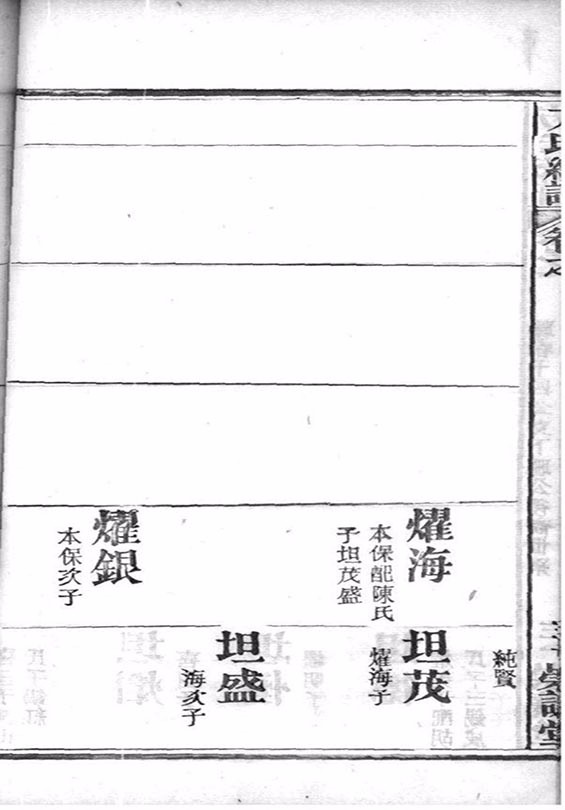 純賢
燿海
本保配陳氏
子坦茂盛
燿銀
本保次子
坦茂
燿海子
坦盛
海次子